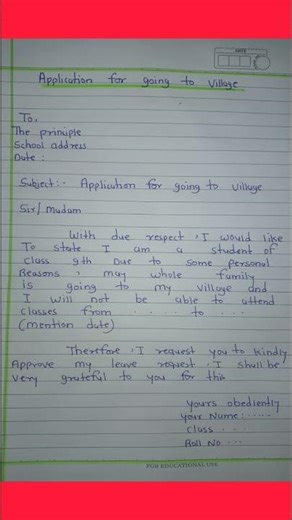 DATE
Application for going to village
To,
The principle
School address
Date :
Subject:- Application for going to village
Sir/ Madam
With due respect, I would like
To state I am a student of
class 9th Due to some personal
Reasons, may whole family
is going to my village and
I will not be able to attend
classes from .... to ...
(mention date)
Therefore, I request you to kindly
Approve my leave request. I shall be
very grateful to you for this
yours obediently
your Name:.....
Class . .
Roll No ...
FOR EDUCATIONAL USE